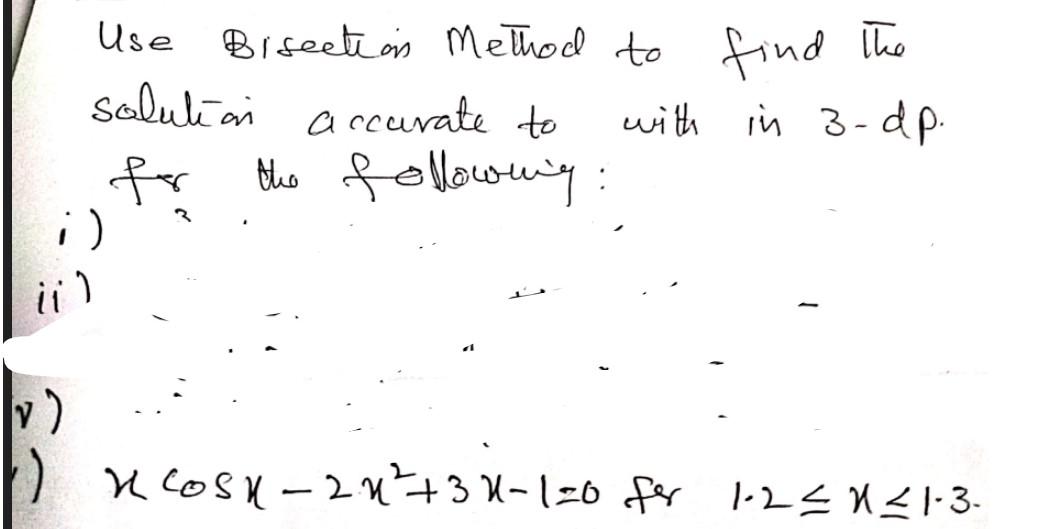 Use Bisection Method to find the
solution accurate to with in 3-dp.
for the following:
i)
ii)
v)
)
x cosx - 2x²+3x-1=0 for 1.2 ≤ x ≤ 1.3.